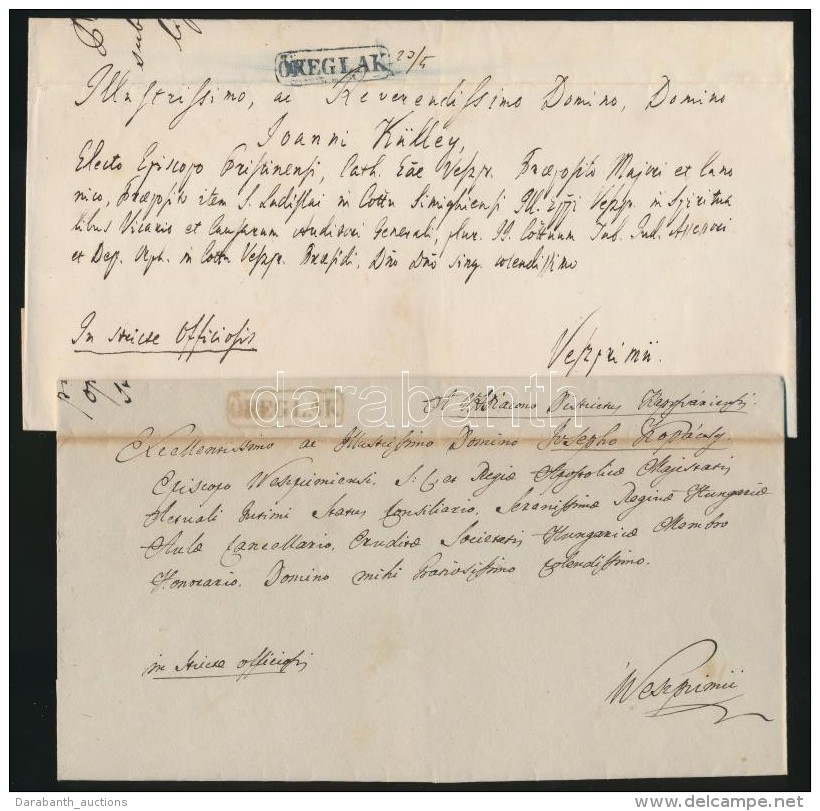 ÖREGLAK 23/5
Illustrissimo, ac Reverendissimo Domino, Domino
Joanni Külley,
Electo Episcopo Pristinensi, Cath. Eccae Veszpr. Praeposito Majori et Cano
nico, Praeposito item S. Ladislai in Cottu Simighiensi Veszpr. in Spiritua
libus Vicario et Causarum Auditori Generali, plur. II. Cottuum Tab. Jud. Assessori
et Dep. Orph. in Cottu Veszpr. Praesidi, Dno Dno sing. colendissimo
In stricte Officiosis
Veszprimii.
darabanth
ÖREGLAK
A. Diacono Districtus Kapolyiensis.
Excellentissimo ac Illustrissimo Domino Josepho Kopácsy
Episcopo Weszprimiensi, S. C. et Regiae Apostolicae Majestatis
Actuali Intimi Status Consiliario, Serenissimae Reginae Hungariae
Aulae Cancellario, Eruditae Societatis Hungaricae Membro
Honorario, Domino mihi Gratiosissimo Colendissimo.
in stricte officiosis
Weszprimii
Darabanth_auctions
www.delcampe.net